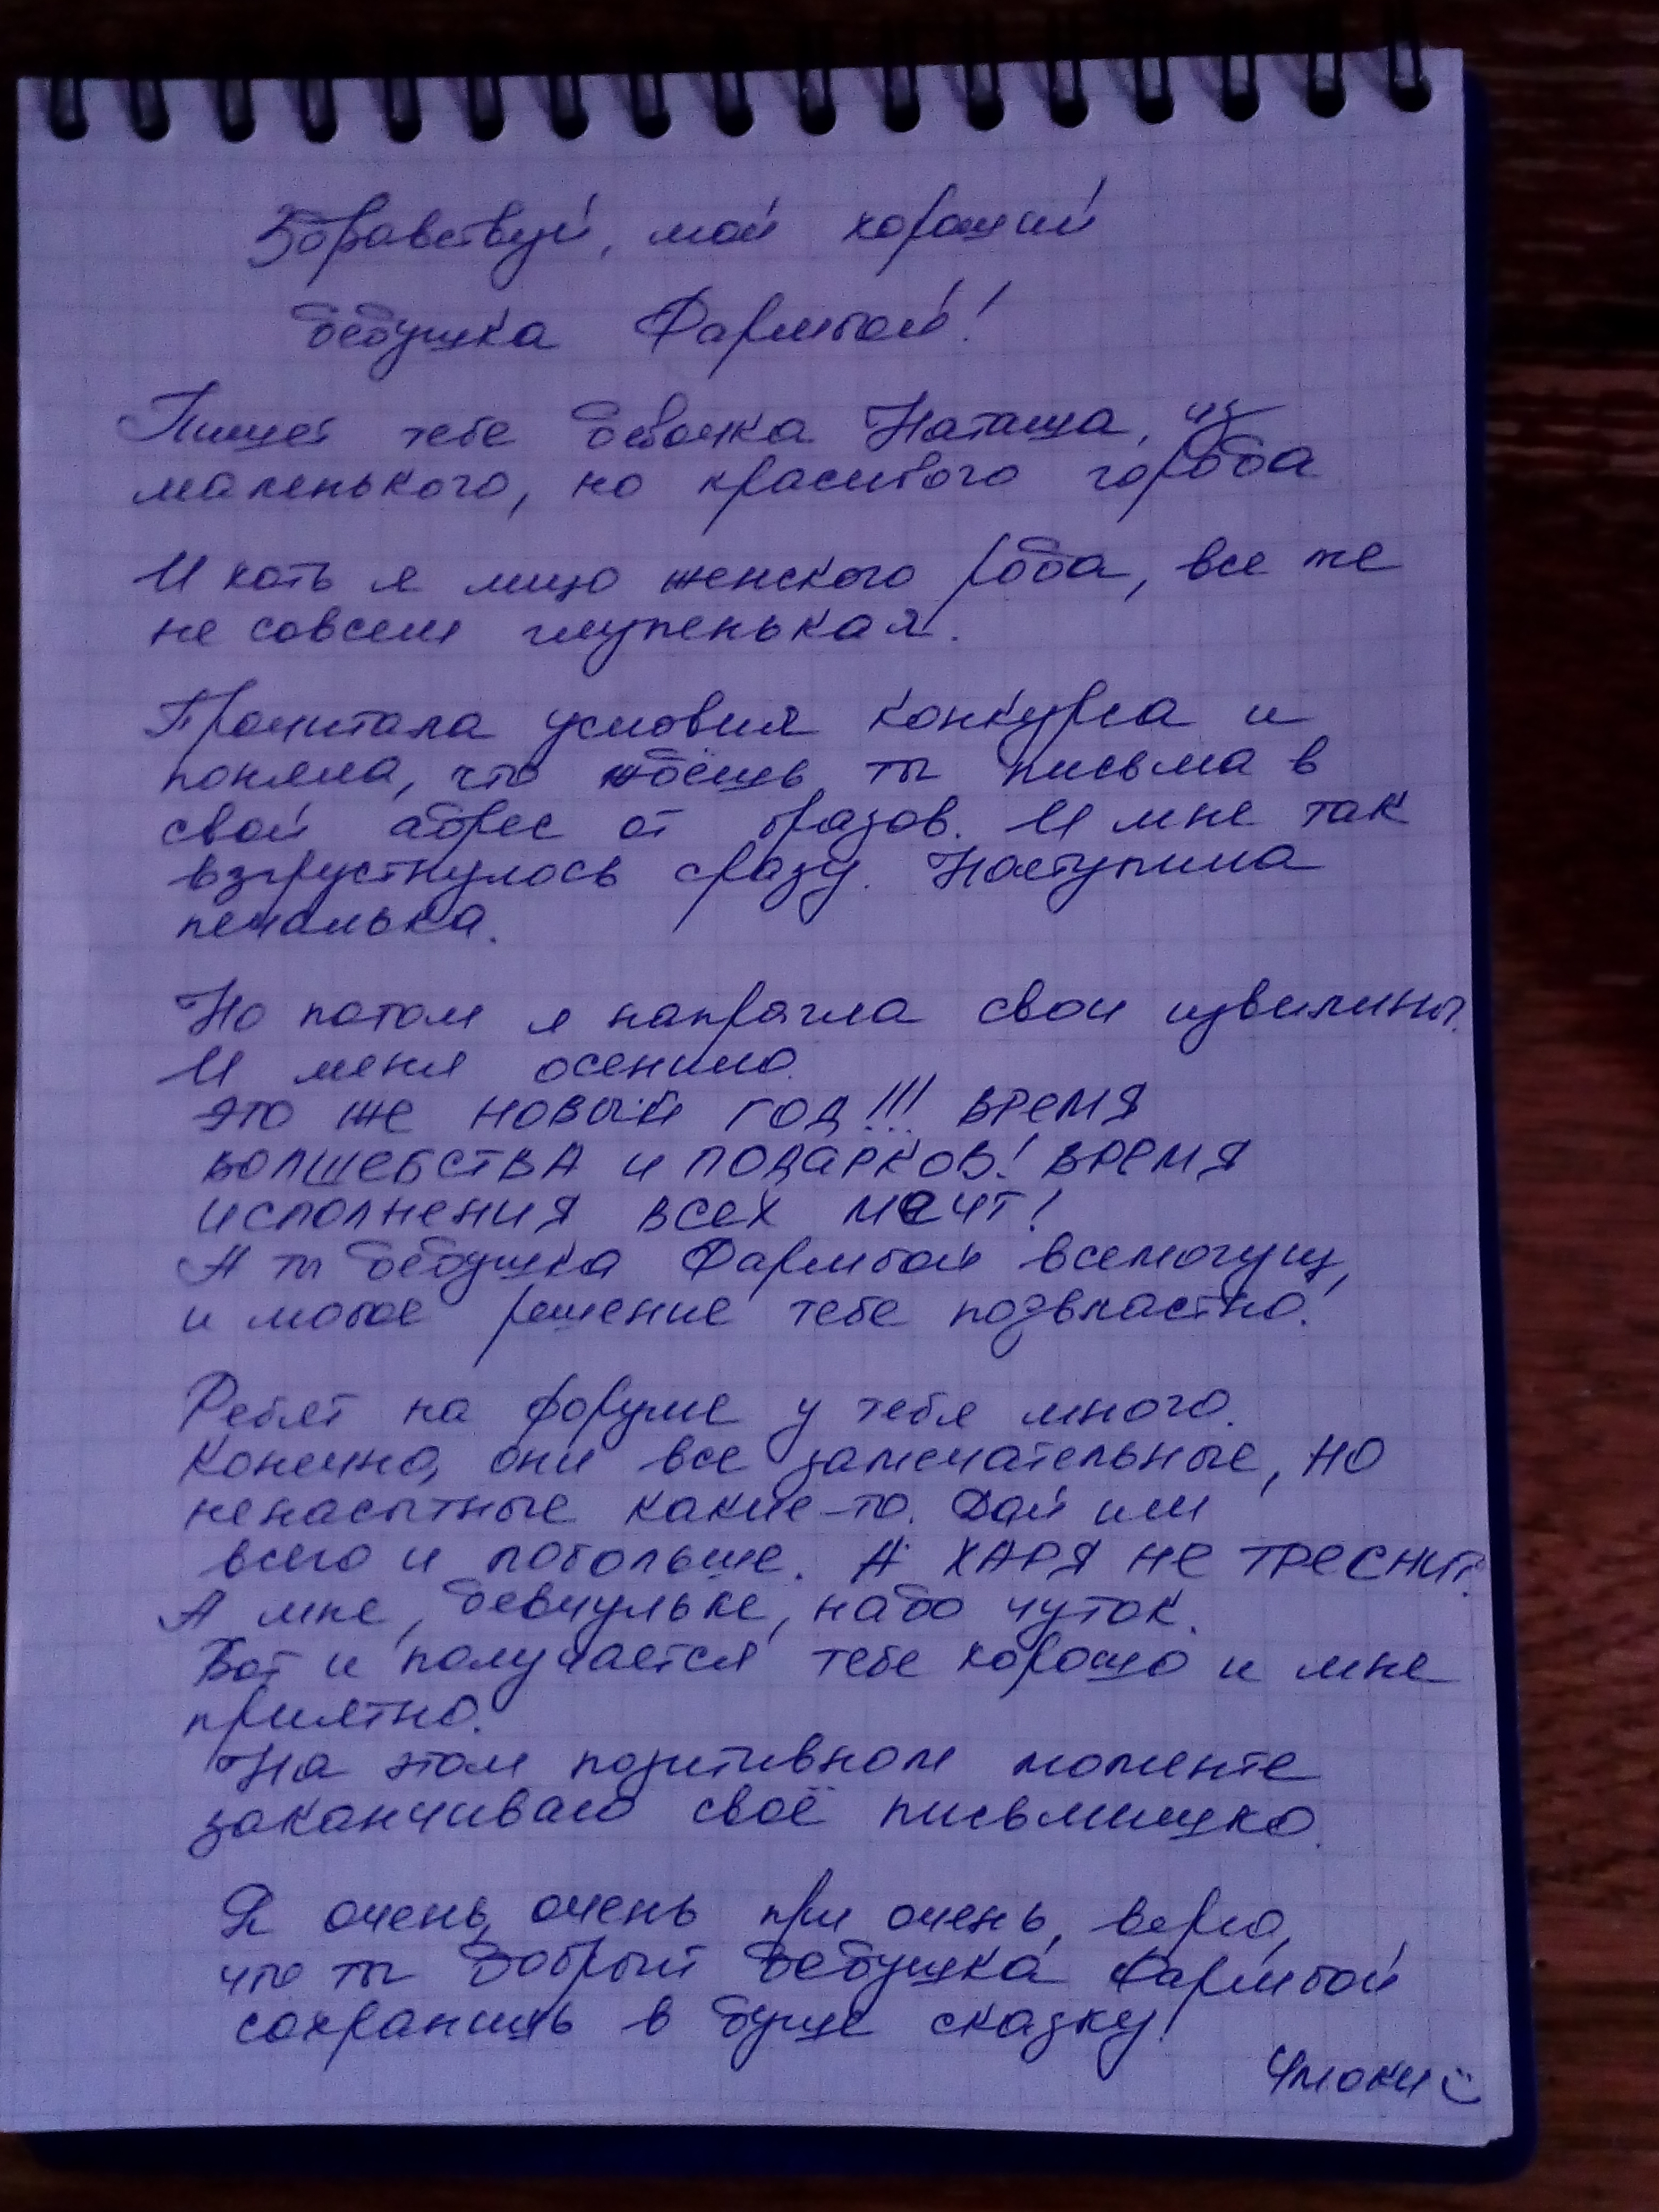 Здравствуй, мой хороший
дедушка Фармбой!
Пишет тебе девочка Наташа, из
маленького, но красивого города
И хоть я лицо женского рода, все же
не совсем глупенькая.
Прочитала условия конкурса и
поняла, что ждёшь ты письма в
свой адрес от бразов. И мне так
взгрустнулось сразу. Наступила
печалька.
Но потом я напрягла свои извилины.
И меня осенило.
ЭТО ЖЕ НОВЫЙ ГОД!!! ВРЕМЯ
ВОЛШЕБСТВА И ПОДАРКОВ! ВРЕМЯ
ИСПОЛНЕНИЯ ВСЕХ МЕЧТ!
А ты дедушка Фармбой всемогущ,
и любое решение тебе подвластно.
Ребят на форуме у тебя много.
Конечно, они все замечательные, НО
ненасытные какие-то. Дай им
всего и побольше. А ХАРЯ НЕ ТРЕСНИТ?
А мне, девчульке, надо чуток.
Вот и получается тебе хорошо и мне
приятно.
На этом позитивном моменте
заканчиваю своё письмишко.
Я очень, очень при очень, верю,
что ты Добрый Дедушка Фармбой
сохранишь в душе сказку!
Чмоки